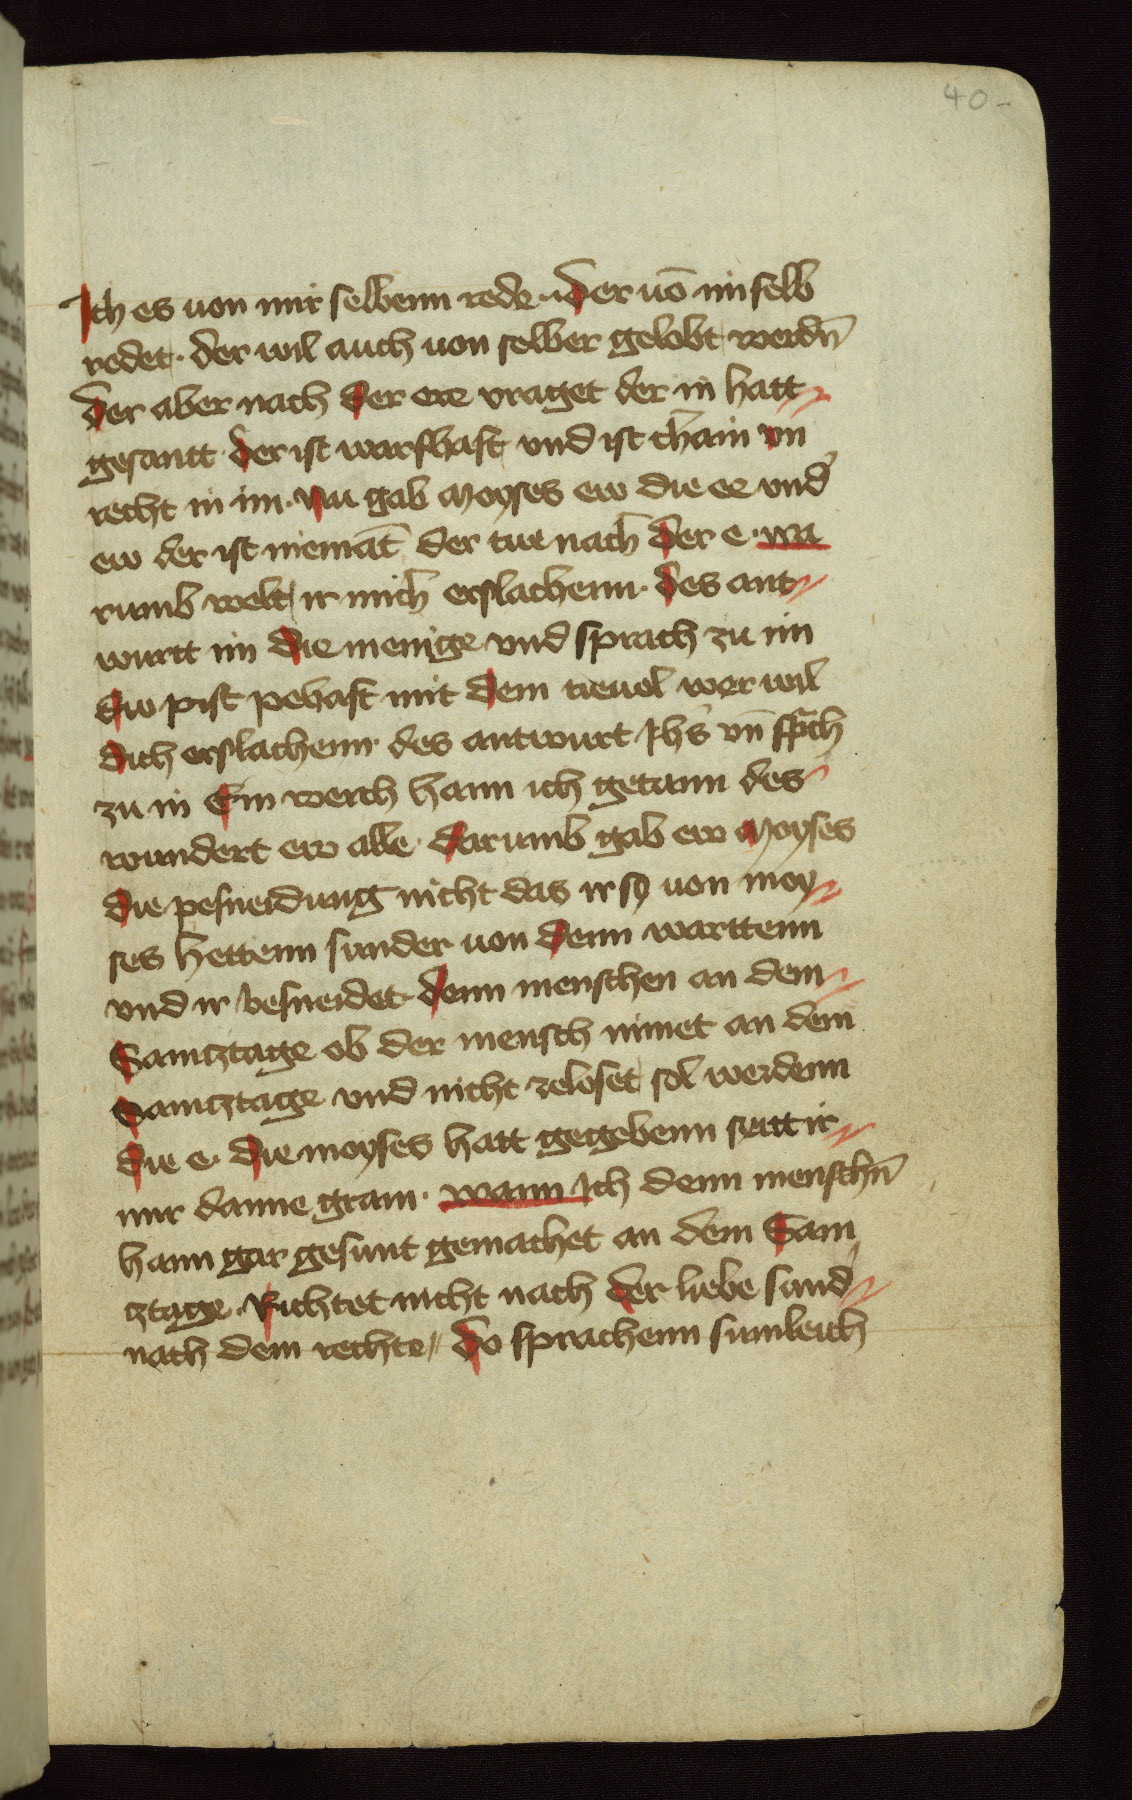 40
Ich es von mir selbenn rede · Der vō im selb
redet · der wil auch von selber gelobt werdn̄
Der aber nach der ere vraget der in hatt
gesantt der ist warfhaft vnd ist chain vn
recht in im · Nu gab Moyses ew die ee vnd
ew der ist niemāt der tue nach der e · wa
rumb welt ir mich erslachenn · des ant
wurtt im die menige vnd sprach zu im
du pist pehaft mit dem tieuel wer wil
dich erslachenn des antwurt Jhs vn̄ sprach
zu in Ein werch hann ich getann des
wundert ew alle · darumb gab ew Moyses
die pesneidung nicht das ir sy von moy
ses hettenn sunder von denn warttenn
vnd ir besneidet denn menschen an dem
Samcztage ob der mensch nimet an dem
Samcztage vnd nicht zeloset sol werdenn
die e · die moyses hatt gegebenn seitt ir
mir danne gram · wann Ich denn menschn̄
hann gar gesunt gemachet an dem Sam
cztage · Richtet nicht nach der liebe sund
nach dem rechte do sprachenn sumleich